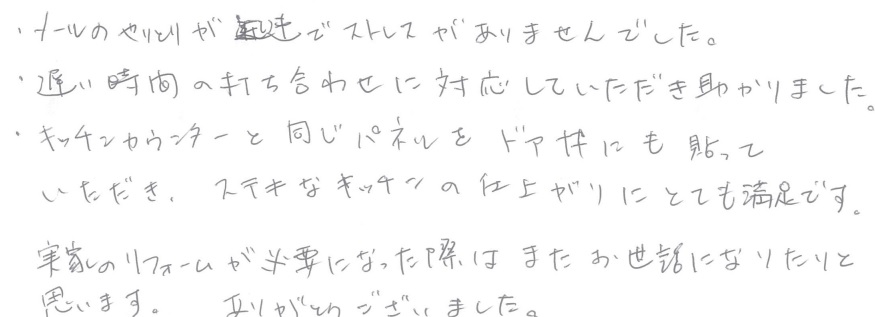 ・メールのやりとりが迅速でストレスがありませんでした。
・遅い時間の打ち合わせに対応していただき助かりました。
・キッチンカウンターと同じパネルをドア枠にも貼って
いただき、ステキなキッチンの仕上がりにとても満足です。
実家のリフォームが必要になった際はまたお世話になりたいと
思います。 ありがとうございました。